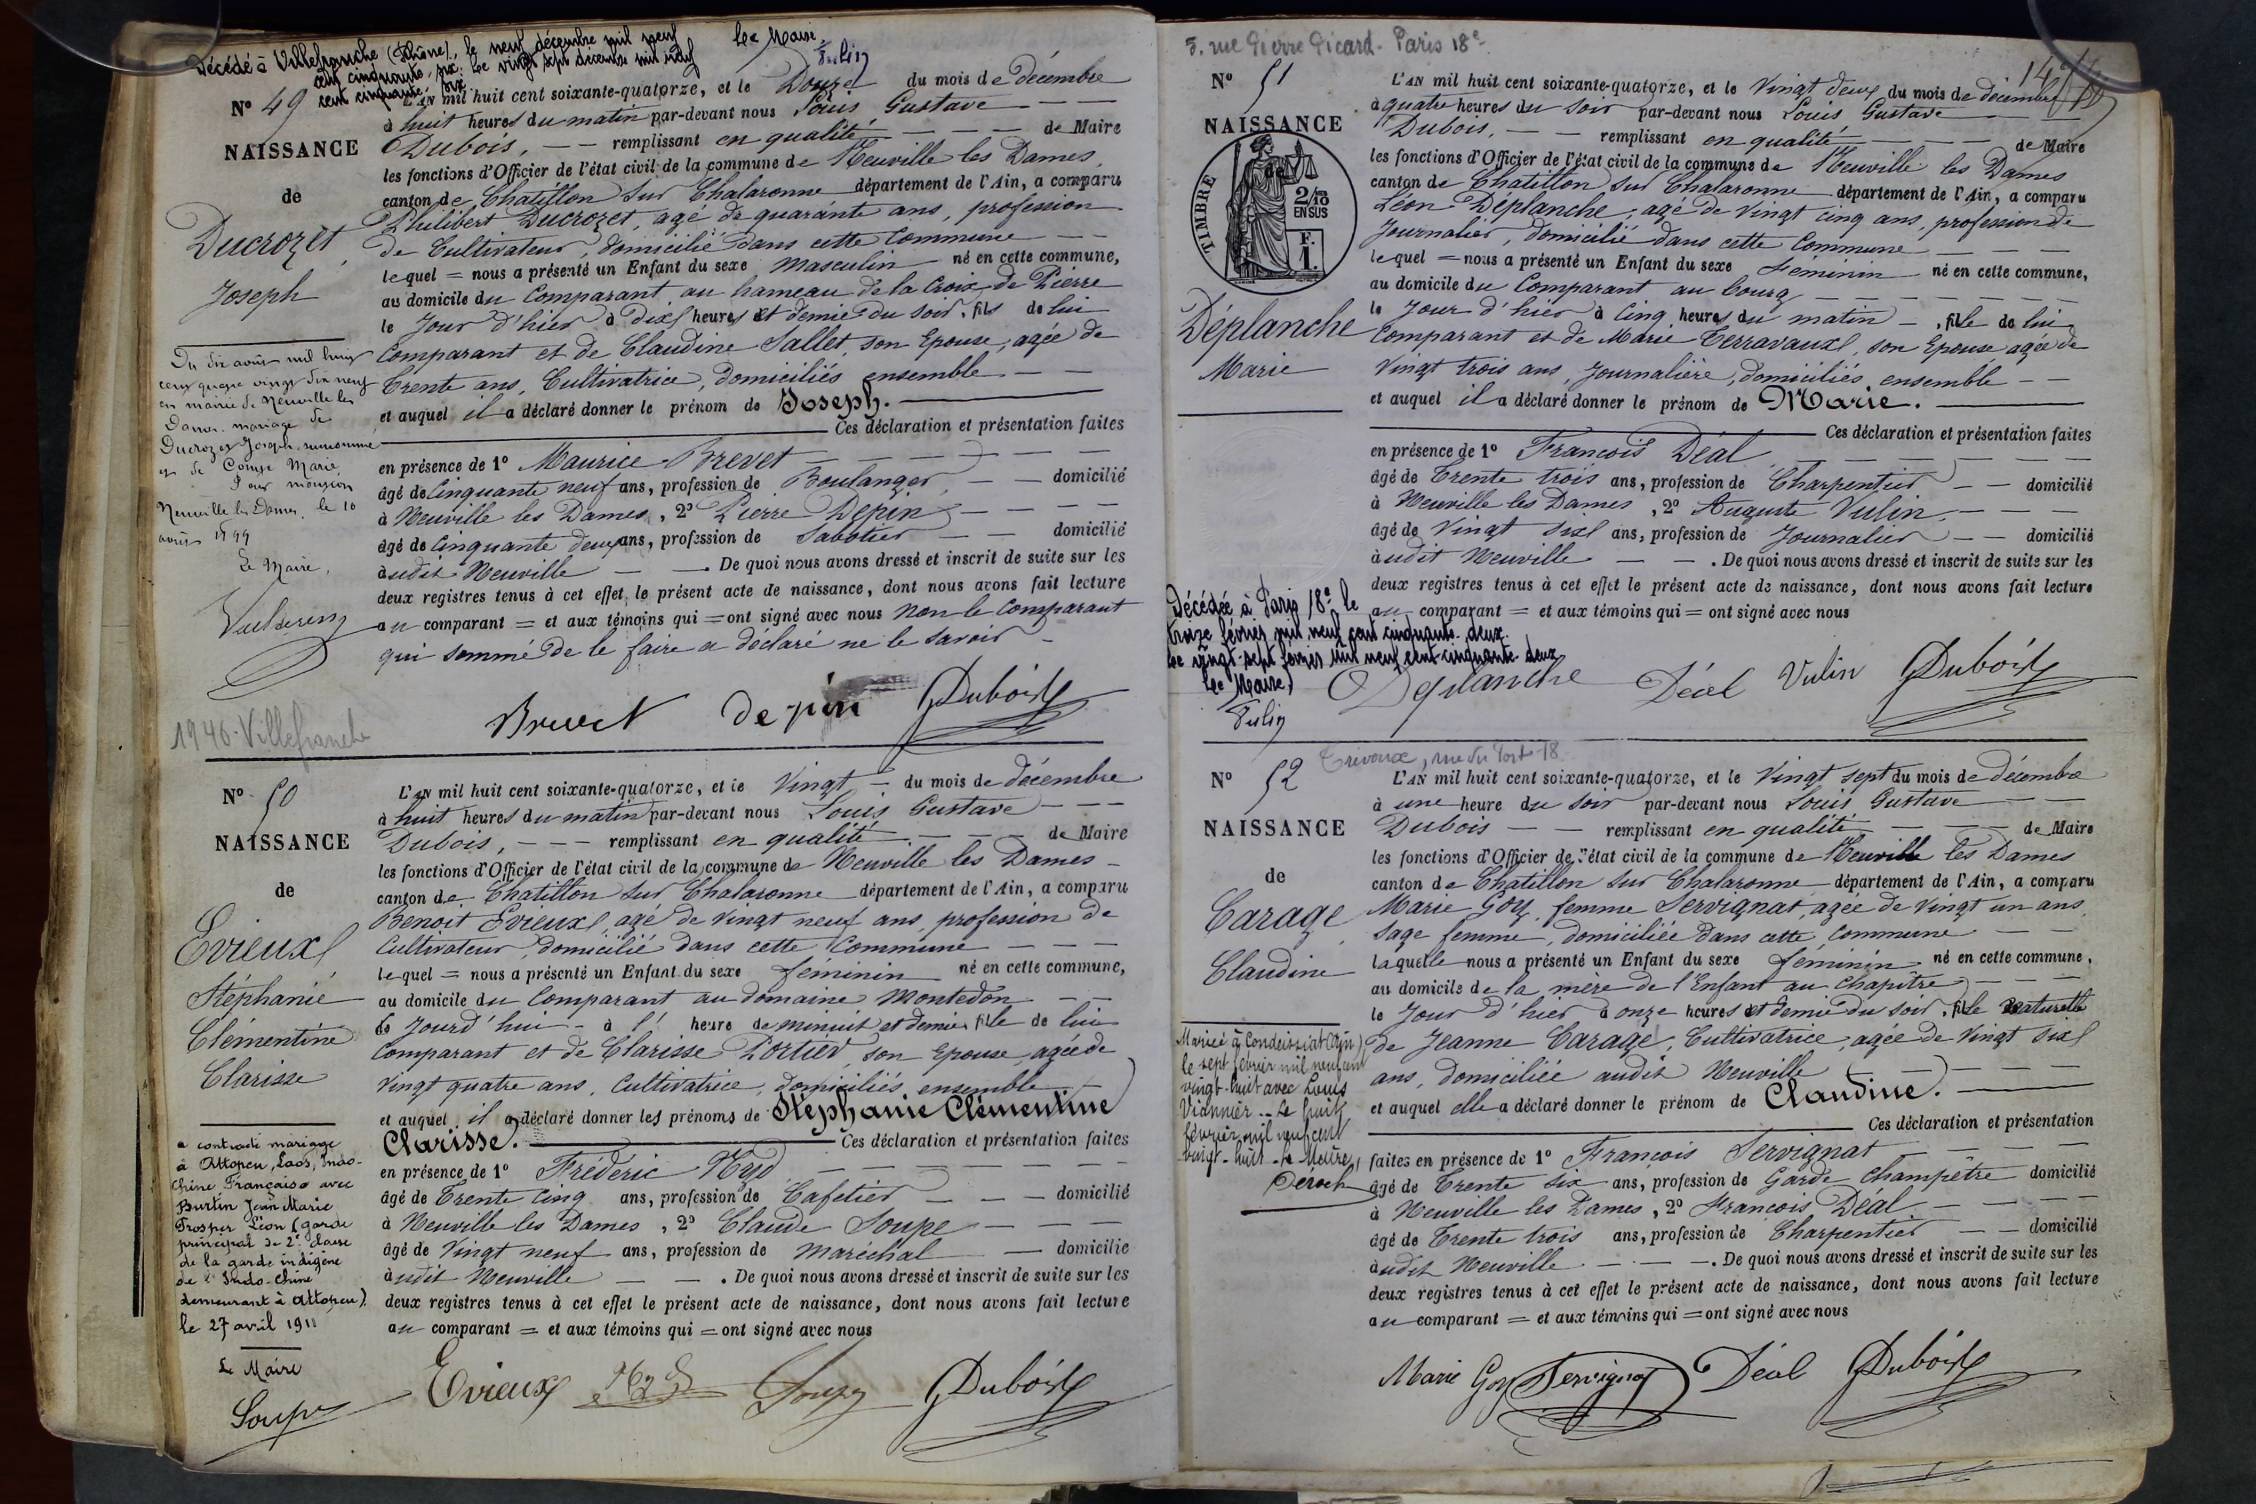 Décédé à Villefranche (Rhône), le neuf décembre mil neuf
cent cinquante-six. Le vingt sept décembre mil neuf
cent cinquante-six
Le Maire,
N° 49
NAISSANCE
de
Ducrozet
Joseph
L'AN mil huit cent soixante-quatorze, et le Douze du mois de décembre
à huit heures du matin par-devant nous Louis Gustave
Dubois, remplissant en qualité de Maire
les fonctions d'Officier de l'état civil de la commune de Neuville les Dames,
canton de Chatillon sur Chalaronne département de l'Ain, a comparu
Philibert Ducrozet, agé de quarante ans, profession
de Cultivateur, domicilié dans cette Commune
lequel = nous a présenté un Enfant du sexe Masculin né en cette commune,
au domicile du Comparant au hameau de la Croix de Pierre
le Jour d'hier à dix heures et demie du soir, fils de lui
Comparant et de Claudine Sallet, son Epouse, agée de
Trente ans, Cultivatrice, domiciliés ensemble
et auquel il a déclaré donner le prénom de Joseph.
Ces déclaration et présentation faites
en présence de 1° Maurice Brevet
âgé de Cinquante neuf ans, profession de Boulanger, domicilié
à Neuville les Dames, 2° Pierre Depin
âgé de Cinquante deux ans, profession de Sabotier domicilié
audit Neuville. De quoi nous avons dressé et inscrit de suite sur les
deux registres tenus à cet effet le présent acte de naissance, dont nous avons fait lecture
au comparant = et aux témoins qui = ont signé avec nous non le Comparant
qui sommé de le faire a déclaré ne le savoir
Brevet Depin Dubois
Du dix août mil huit
cent quatre vingt dix neuf
en mairie de Neuville les
Dames mariage de
Ducrozet Joseph susnommé
et de Marie
Pour mention
Neuville les Dames, le 10
août 1899
Le Maire,
1940-Villefranche
N° 50
NAISSANCE
de
Evieux
Stéphanie
Clémentine
Clarisse
L'AN mil huit cent soixante-quatorze, et le Vingt du mois de décembre
à huit heures du matin par-devant nous Louis Gustave
Dubois, remplissant en qualité de Maire
les fonctions d'Officier de l'état civil de la commune de Neuville les Dames
canton de Chatillon sur Chalaronne département de l'Ain, a comparu
Benoit Evieux, agé de vingt neuf ans, profession de
Cultivateur, domicilié dans cette Commune
lequel = nous a présenté un Enfant du sexe féminin né en cette commune,
au domicile du Comparant au domaine Montedon
le Jourd'hui à l' heure de minuit et demie, fille de lui
Comparant et de Clarisse Portier son Epouse, agée de
vingt quatre ans, Cultivatrice, domiciliés ensemble
et auquel il a déclaré donner les prénoms de Stéphanie Clémentine
Clarisse. Ces déclaration et présentation faites
en présence de 1° Frédéric Hyd
âgé de Trente Cinq ans, profession de Cafetier domicilié
à Neuville les Dames, 2° Claude Soupe
âgé de Vingt neuf ans, profession de Maréchal domicilié
audit Neuville. De quoi nous avons dressé et inscrit de suite sur les
deux registres tenus à cet effet le présent acte de naissance, dont nous avons fait lecture
au comparant = et aux témoins qui = ont signé avec nous
Evieux Hyd Soupe Dubois
a contracté mariage
à Attopeu, Laos, Indo-
Chine Française avec
Burtin Jean Marie
Prosper Léon (garde
principal de 2e classe
de la garde indigène
de l'Indo-Chine
demeurant à Attopeu)
le 27 avril 1911
Le Maire
Soupe
3, rue Pierre Picard - Paris 18e
N° 51
NAISSANCE
de
TIMBRE
2/10
EN SUS
F.
1.
Déplanche
Marie
L'AN mil huit cent soixante-quatorze, et le Vingt deux du mois de décembre
à quatre heures du soir par-devant nous Louis Gustave
Dubois, remplissant en qualité de Maire
les fonctions d'Officier de l'état civil de la commune de Neuville les Dames
canton de Chatillon sur Chalaronne département de l'Ain, a comparu
Léon Déplanche, agé de Vingt cinq ans, profession de
Journalier, domicilié dans cette Commune
lequel = nous a présenté un Enfant du sexe féminin né en cette commune,
au domicile du Comparant au bourg
le Jour d'hier à Cinq heures du matin, fille de lui
Comparant et de Marie Terravaux, son Epouse agée de
Vingt trois ans, Journalière, domiciliés ensemble
et auquel il a déclaré donner le prénom de Marie.
Ces déclaration et présentation faites
en présence de 1° François Déal
âgé de Trente trois ans, profession de Charpentier domicilié
à Neuville les Dames, 2° Auguste Vulin
âgé de Vingt six ans, profession de Journalier domicilié
audit Neuville. De quoi nous avons dressé et inscrit de suite sur les
deux registres tenus à cet effet le présent acte de naissance, dont nous avons fait lecture
au comparant = et aux témoins qui = ont signé avec nous
Déplanche Déal Vulin Dubois
Décédée à Paris 18e le
treize février mil neuf cent cinquante-deux.
Le vingt-sept février mil neuf cent cinquante-deux
Le Maire,
Trévoux, rue du Port 18
N° 52
NAISSANCE
de
Carage
Claudine
L'AN mil huit cent soixante-quatorze, et le Vingt sept du mois de décembre
à une heure du soir par-devant nous Louis Gustave
Dubois remplissant en qualité de Maire
les fonctions d'Officier de l'état civil de la commune de Neuville les Dames
canton de Chatillon sur Chalaronne département de l'Ain, a comparu
Marie Goy, femme Servignat, agée de Vingt un ans,
Sage femme, domiciliée dans cette Commune
laquelle nous a présenté un Enfant du sexe féminin né en cette commune,
au domicile de la mère de l'Enfant au Chapitre
le Jour d'hier à onze heures et demie du soir, fille naturelle
de Jeanne Carage, Cultivatrice, agée de Vingt six
ans, domiciliée audit Neuville
et auquel elle a déclaré donner le prénom de Claudine.
Ces déclaration et présentation
faites en présence de 1° François Servignat
âgé de Trente six ans, profession de Garde Champêtre domicilié
à Neuville les Dames, 2° François Déal
âgé de Trente trois ans, profession de Charpentier domicilié
audit Neuville. De quoi nous avons dressé et inscrit de suite sur les
deux registres tenus à cet effet le présent acte de naissance, dont nous avons fait lecture
au comparant = et aux témoins qui = ont signé avec nous
Marie Goy Servignat Déal Dubois
Mariée à Condeissiat (Ain)
le sept février mil neuf cent
vingt-huit avec Louis
Viannier. Le huit
février mil neuf cent
vingt-huit. Le Maire,